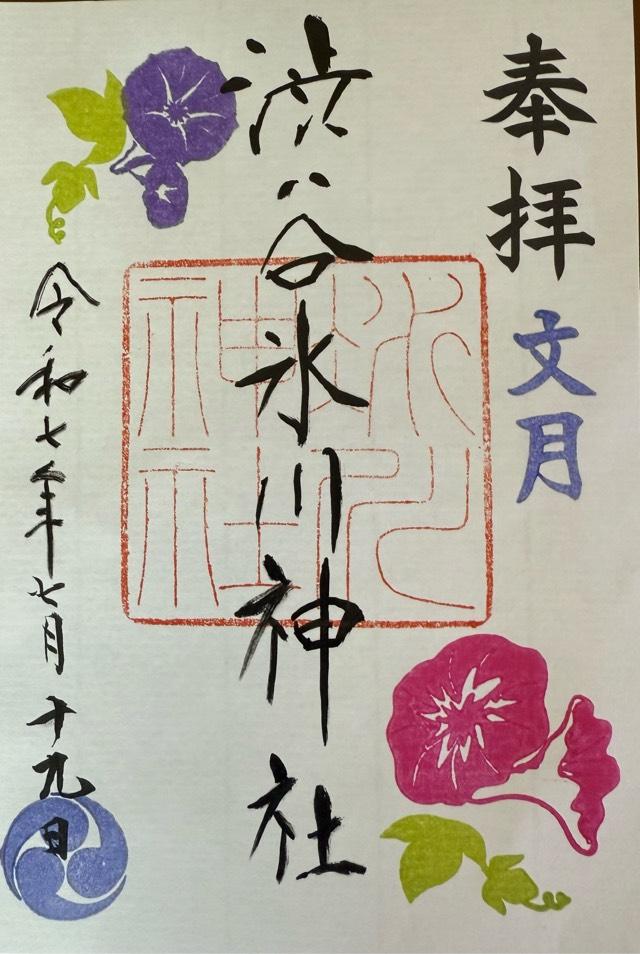 奉拝
文月
渋谷氷川神社
氷川神社
令和七年七月十九日